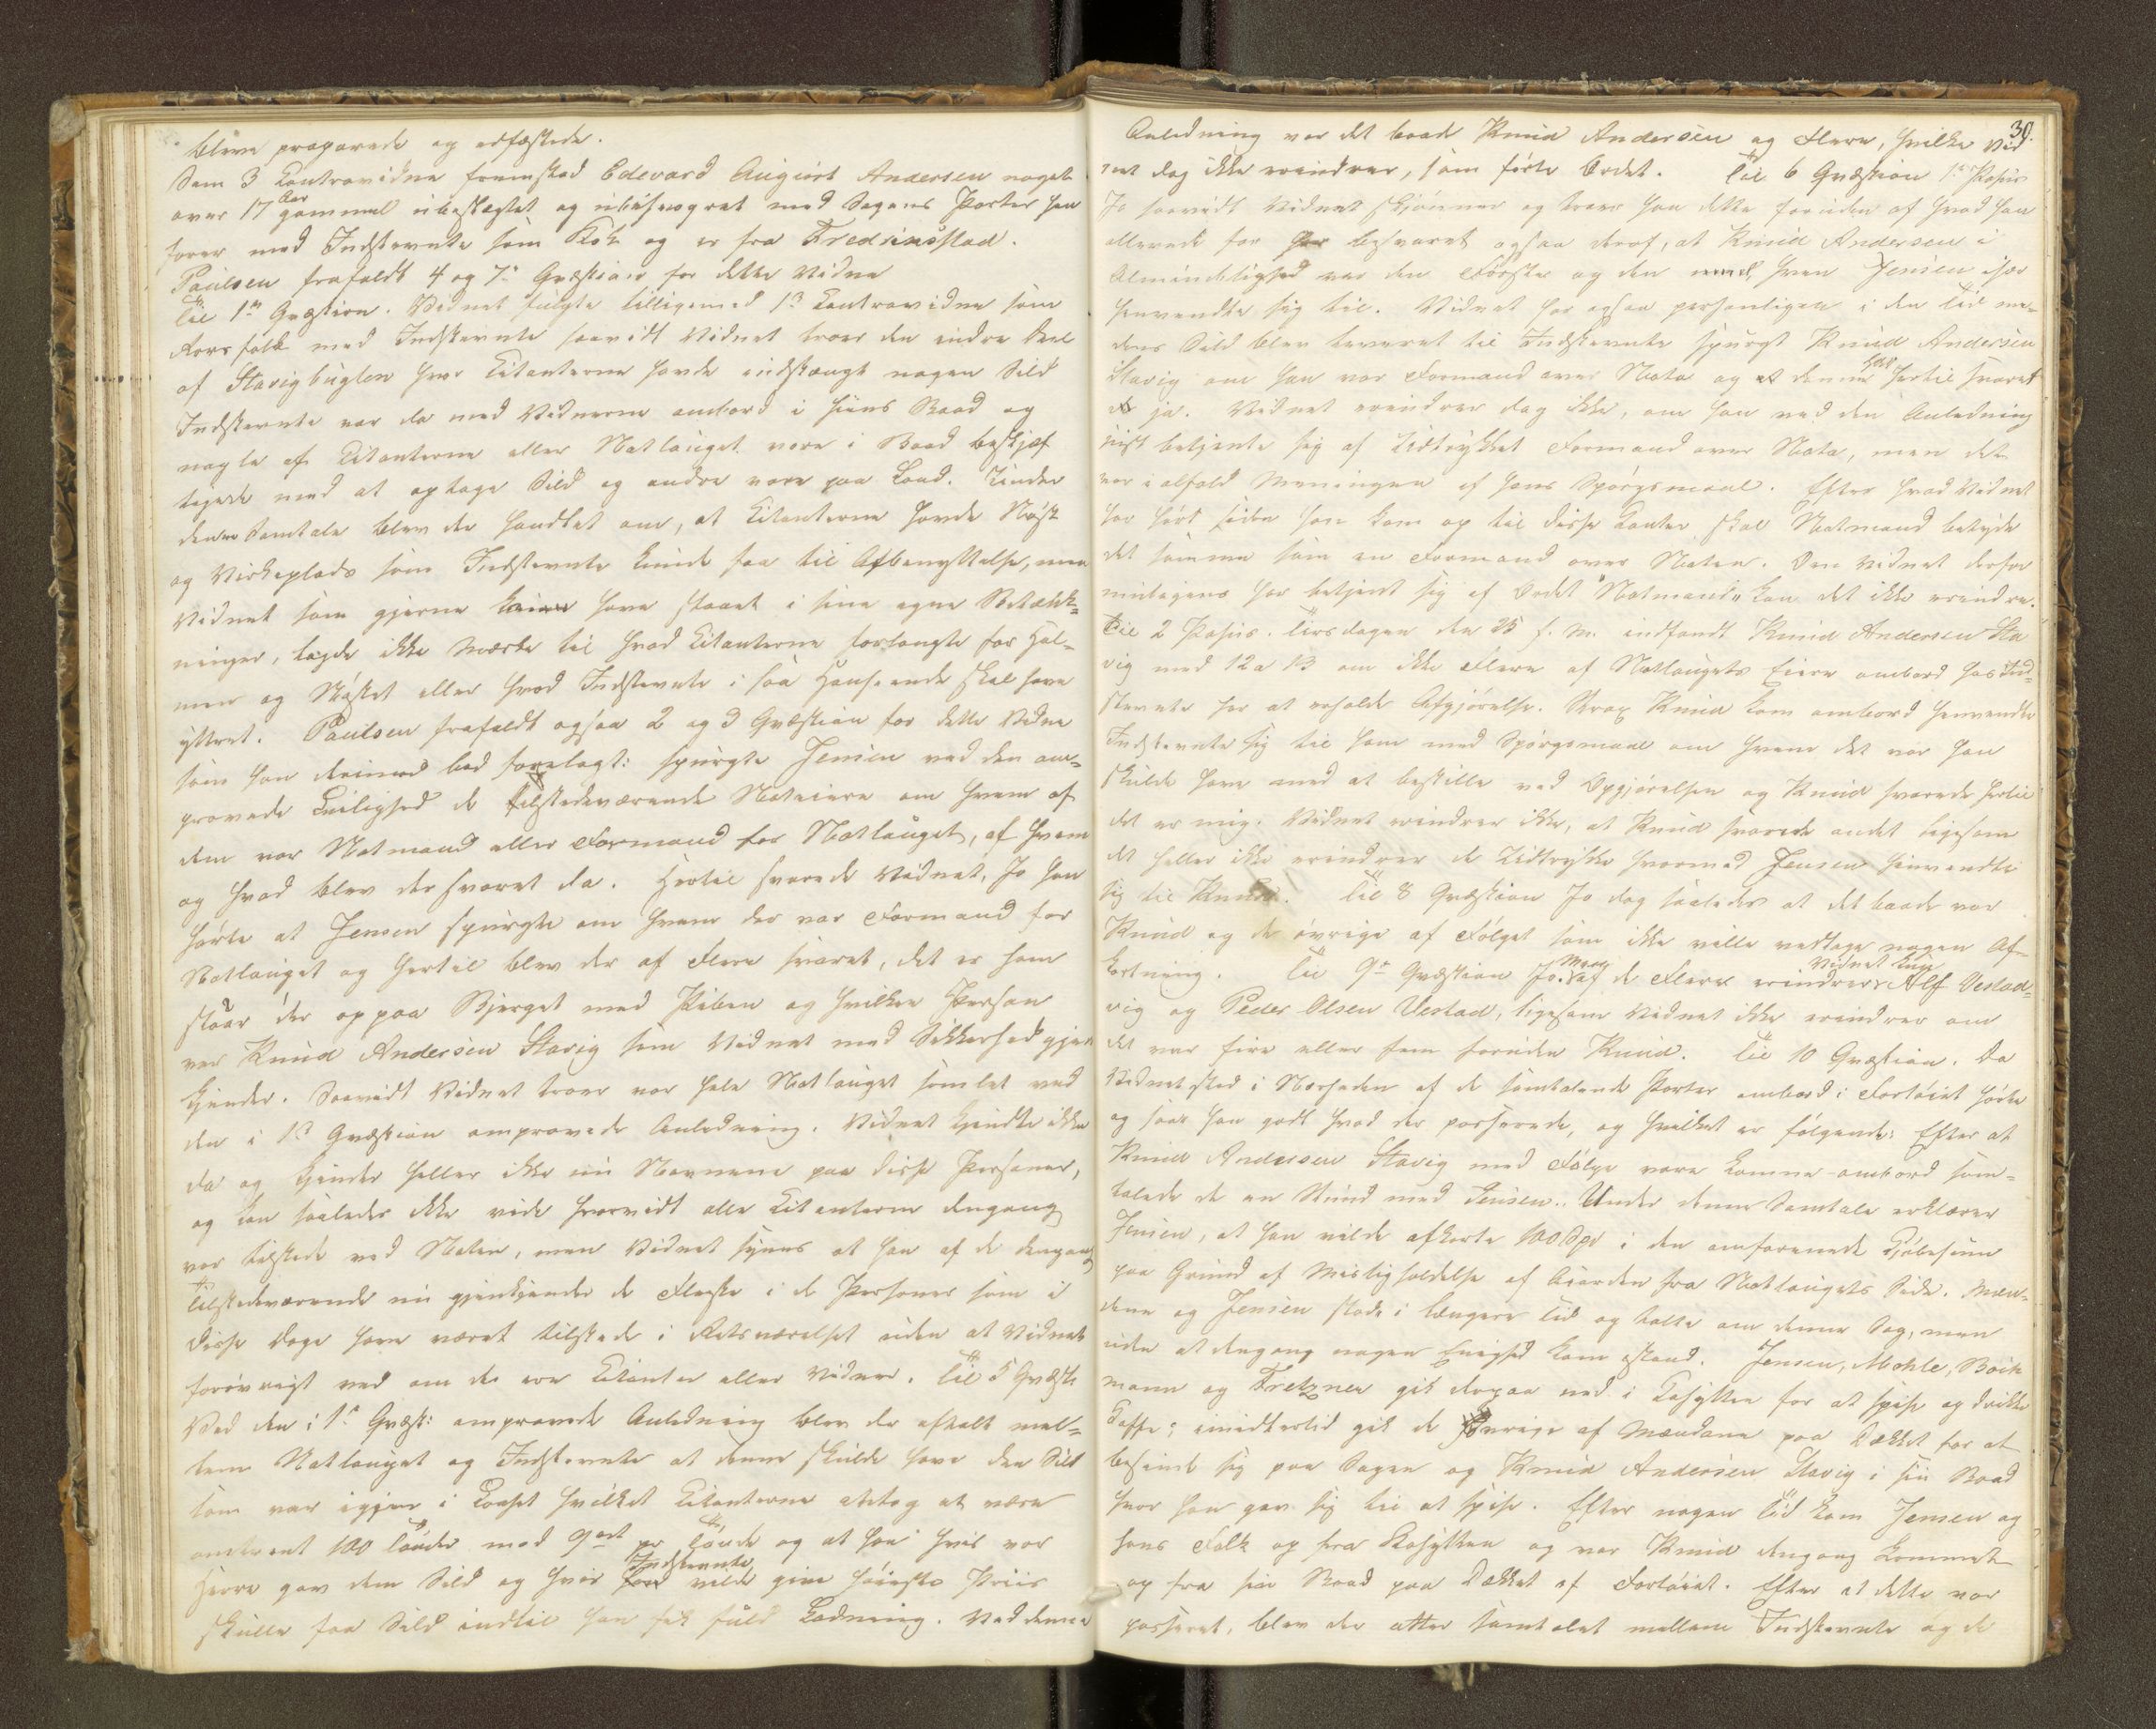 bleve properede og edfæstede.
Som 3 Contravidne fremstod Edevard August Andersen noget
over 17 Aar gammel ubeslægtet og ubesvogret med Sagens Parter han
farer med Indstevnte som Kok og er fra Fredriksstad.
Paulsen frafaldt 4 og 7de Qvæstioner for dette Vidne
Til 1ste Qvæstion. Vidnet fulgte tilligemed 1ste Contravidne som
Rorsfolk med Indstevnte saavidt Vidnet troer den indre Deel
af Stavigbugten hvor Citanterne havde indstængt nogen Sild
Indstevnte var da med Vidnerne ombord i hans Baad og
nogle af Citanterne eller Notlauget vare i Baad beskjæf
tigede med at optage Sild og andre vare paa Land. Under
denne Samtale blev der handlet om, at Citanterne havde Nøst
og Virkeplads som Indstevnte kunde faa til Afbenyttelse, men
Vidnet som gjerne kunne have staaet i sine egne Betænk-
ninger, lagde ikke Mærke til hvad Citanterne forlangte for Hol-
men og Nøstet eller hvad Indstevnte i saa Henseende skal have
yttret. Paulsen frafaldt ogsaa 2 og 3 Qvæstion for dette Vidne
som han derimod bad forelagt: spurgte Jensen ved den om-
provede Leilighed de tilstedeværende Noteiere om hvem af
dem var Notmand eller Formand for Notlauget, af hvem
og hvad blev der svaret da. Hertil svarede Vidnet, Jo han
hørte at Jensen spurgte om hvem der var Formand for
Notlauget og hertil blev der af Flere svaret, det er ham
staar der op paa Bjerget med Piben og hvilken Person
var Knud Andersen Stavig som Vidnet med Sikkerhed gjen
kjender. Saavidt Vidnet troer var hele Notlauget samlet ved
den i 1ste Qvæstion omprovede Anledning. Vidnet kjendte ikke
da og kjender heller ikke nu Navnene paa disse Personer,
og kan saaledes ikke vide hvorvidt alle Citanterne dengang
var tilstede ved Noten, men Vidnet synes at han af de dengang
tilstedeværende nu gjenkjender de Fleste i de Personer som i
disse Dage have været tilstede i Retsværelset uden at Vidnet
forøvrigt ved om de ere Citanter eller Vidner. Til 5 Qvæst:
Ved den i 1ste Qvæst: omprovede Anledning blev der aftalt mel-
lem Notlauget og Indstevnte at denne skulde have den Sild
som var igjen i Kastet hvilket Citanterne antog at være
omtrent 100 Tønder mod 9 ort pr Tønde og at han hvis var
Herre gav dem Sild og hvis Indstevnte vilde give høieste Priis
skulle faa Sild indtil han fik fuld Ladning. Ved denne
30.
Anledning var det baade Knud Andersen og Flere, hvilke Vid-
net dog ikke erindrer, som førte Ordet. Til 6 Qvæstion 1ste Passus
Jo saavidt Vidnet skjønner og troer han dette foruden af hvad han
allerede har besvaret ogsaa deraf, at Knud Andersen i
Almindelighed var den Første og den mand, hvem Jensen især
henvendte sig til. Vidnet har ogsaa personligen i den Tid me-
dens Sild blev leveret til Indstevnte spurgt Knud Andersen
Stavig om han var Formand over Nota og at denne har hertil svaret
ja. Vidnet erindrer dog ikke, om han ved den Anledning
just betjente sig af Udtrykket Formand over Nota, men det
var i alfald Meningen af hans Spørgsmaal. Efter hvad Vidnet
har hørt siden han kom op til disse Kanter skal Notmand betyde
det samme som en Formand over Noten. Om Vidnet derfor
muligens har betjent sig af Ordet "Notmand" kan det ikke erindre.
Til 2 Passus. Tirsdagen den 25 f. M. indfandt Knud Andersen Sta
vig med 12 a 13 om ikke Flere af Notlaugets Eiere ombord hos Ind-
stevnte for at erholde Afgjørelse. Strax Knud kom ombord henvendte
Indstevnte sig til ham med Spørgsmaal om hvem det var han
skulde have med at bestille ved Opgjørelsen og Knud svarede hertil
det er mig. Vidnet erindrer ikke, at Knud svarede andet ligesom
det heller ikke erindrer de Udtrykke hvormed Jensen henvendte
sig til Knud. Til 8 Qvæstion Jo dog saaledes at det baade var
Knud og de øvrige af Følget som ikke ville vedtage nogen Af-
kortning. Til 9de Qvæstion Jo. Men af de Flere erindrer Vidnet kun Alf Vestad-
vig og Peder Olsen Vestad, ligesom Vidnet ikke erindrer om
det var fire eller fem foruden Knud. Til 10 Qvæstion. Da
Vidnet stod i Nærheden af de samtalende Parter ombord i Fartøiet hørte
og saae han godt hvad der passerede, og hvilket er følgende: Efter at
Knud Andersen Stavig med Følge vare komne ombord sam-
talede de en Stund med Jensen. Under denne Samtale erklærer
Jensen, at han vilde afkorte 100 Spd i den omforenede Kjøbesum
paa Grund af Misligholdelse af Accorden fra Notlaugets Side. Mæn-
dene og Jensen stode i længere Tid og talte om denne Sag, men
uden at dengang nogen Enighed kom istand. Jensen, Mohle, Bock
mann og Fretzner gik derpaa ned i Kahytten for at spise og drikke
Kaffe; imidlertid gik de øvrige af Mændene paa Dækket for at
besinde sig paa Sagen og Knud Andersen Stavig i sin Baad
hvor han gav sig til at spise. Efter nogen Tid kom Jensen og
hans Folk op fra Kahytten og var Knud dengang kommet
op fra sin Baad paa Dækket af Fartøiet. Efter at dette var
passeret, blev der atter samtalet mellem Indstevnte og de